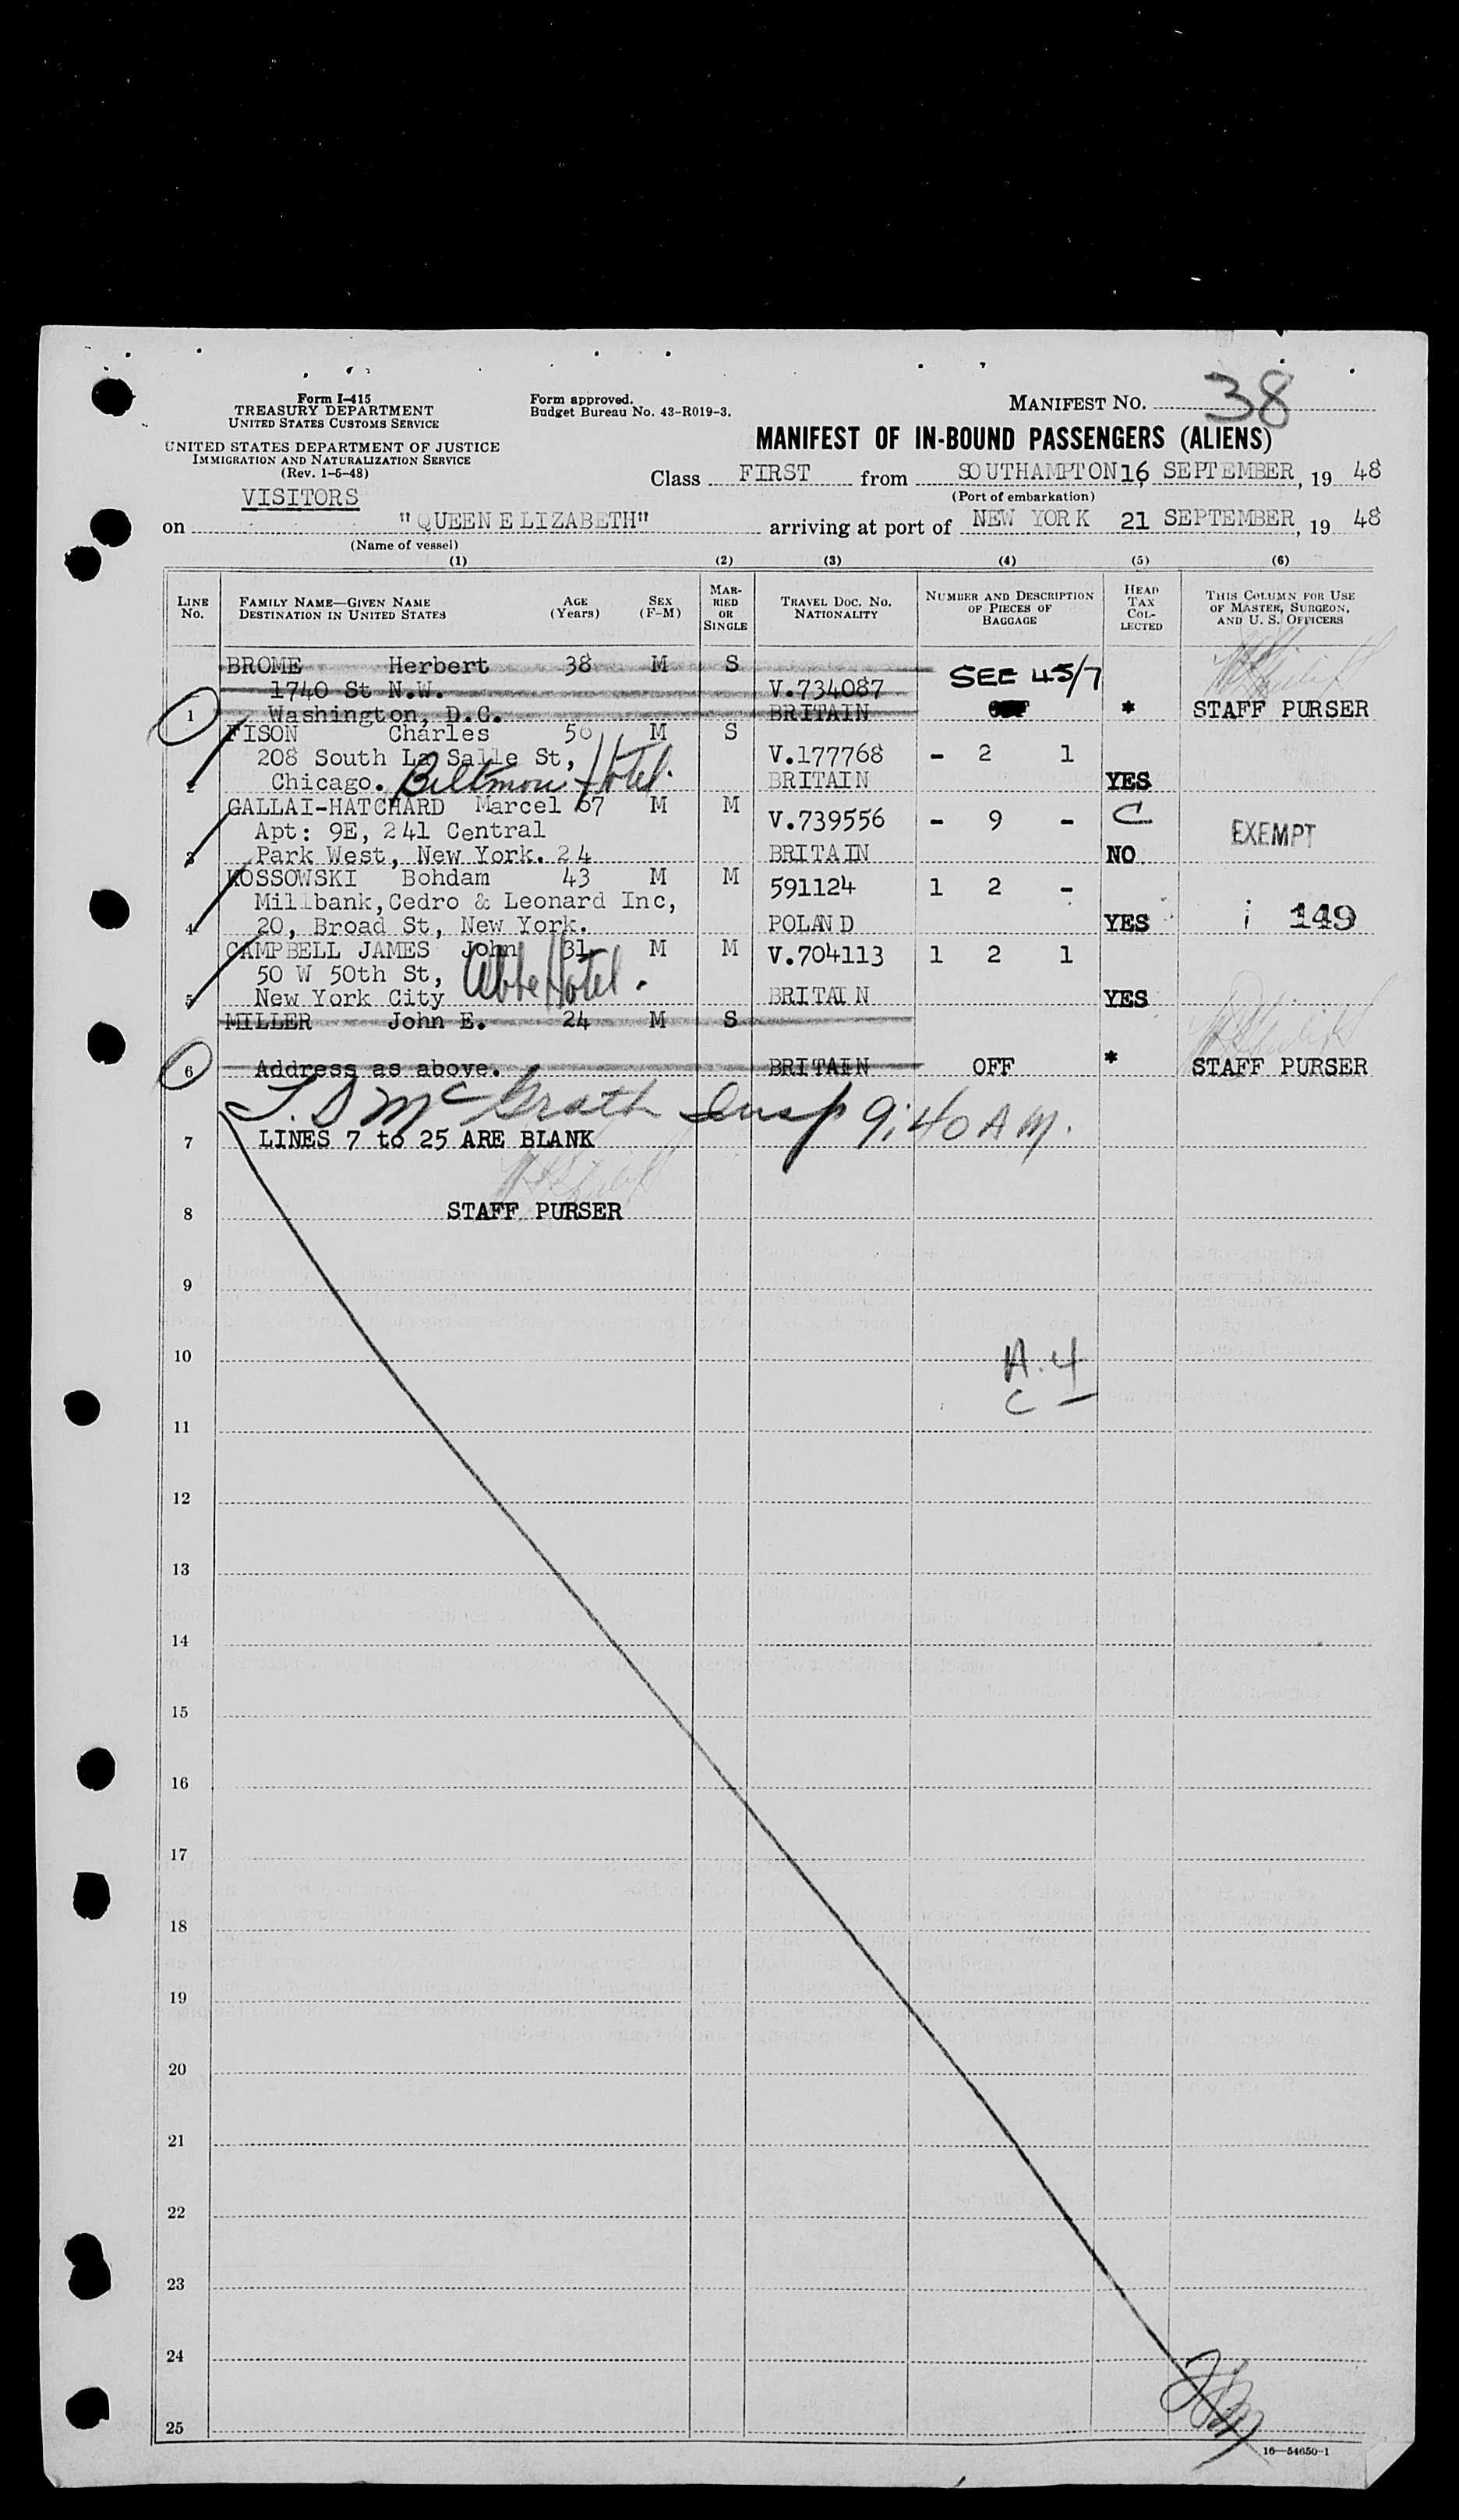 Form I-415
TREASURY DEPARTMENT
UNITED STATES CUSTOMS SERVICE
UNITED STATES DEPARTMENT OF JUSTICE
IMMIGRATION AND NATURALIZATION SERVICE
(Rev. 1-5-48)
Form approved.
Budget Bureau No. 43-R019-3.
MANIFEST NO. 38
MANIFEST OF IN-BOUND PASSENGERS (ALIENS)
Class FIRST from SOUTHAMPTON 16 SEPTEMBER, 19 48
(Port of embarkation)
VISITORS
on "QUEEN ELIZABETH" arriving at port of NEW YORK 21 SEPTEMBER, 19 48
(Name of vessel)
(1) (2) (3) (4) (5) (6)
LINE No. FAMILY NAME—GIVEN NAME DESTINATION IN UNITED STATES AGE (Years) SEX (F-M) MARRIED OR SINGLE TRAVEL DOC. NO. NATIONALITY NUMBER AND DESCRIPTION OF PIECES OF BAGGAGE HEAD TAX COLLECTED THIS COLUMN FOR USE OF MASTER, SURGEON, AND U. S. OFFICERS
BROME Herbert 38 M S SEE 45/7
1740 St N.W. V.734087
1 Washington, D.C. BRITAIN * STAFF PURSER
FISON Charles 50 M S
208 South La Salle St, V.177768 - 2 1
2 Chicago. Biltmore Hotel. BRITAIN YES
GALLAI-HATCHARD Marcel 67 M M C
Apt: 9E, 241 Central V.739556 - 9 - EXEMPT
3 Park West, New York. 24 BRITAIN NO
KOSSOWSKI Bohdam 43 M M
Millbank, Cedro & Leonard Inc, 591124 1 2 -
4 20, Broad St, New York. POLAND YES 149
CAMPBELL JAMES John 31 M M V.704113 1 2 1
50 W 50th St, Abbe Hotel.
5 New York City BRITAIN YES
MILLER John E. 24 M S
6 Address as above. BRITAIN OFF * STAFF PURSER
McGrath Insp 9:40 AM.
7 LINES 7 to 25 ARE BLANK
8 STAFF PURSER
9
10 A. 4
C —
11
12
13
14
15
16
17
18
19
20
21
22
23
24
25
16—54650-1